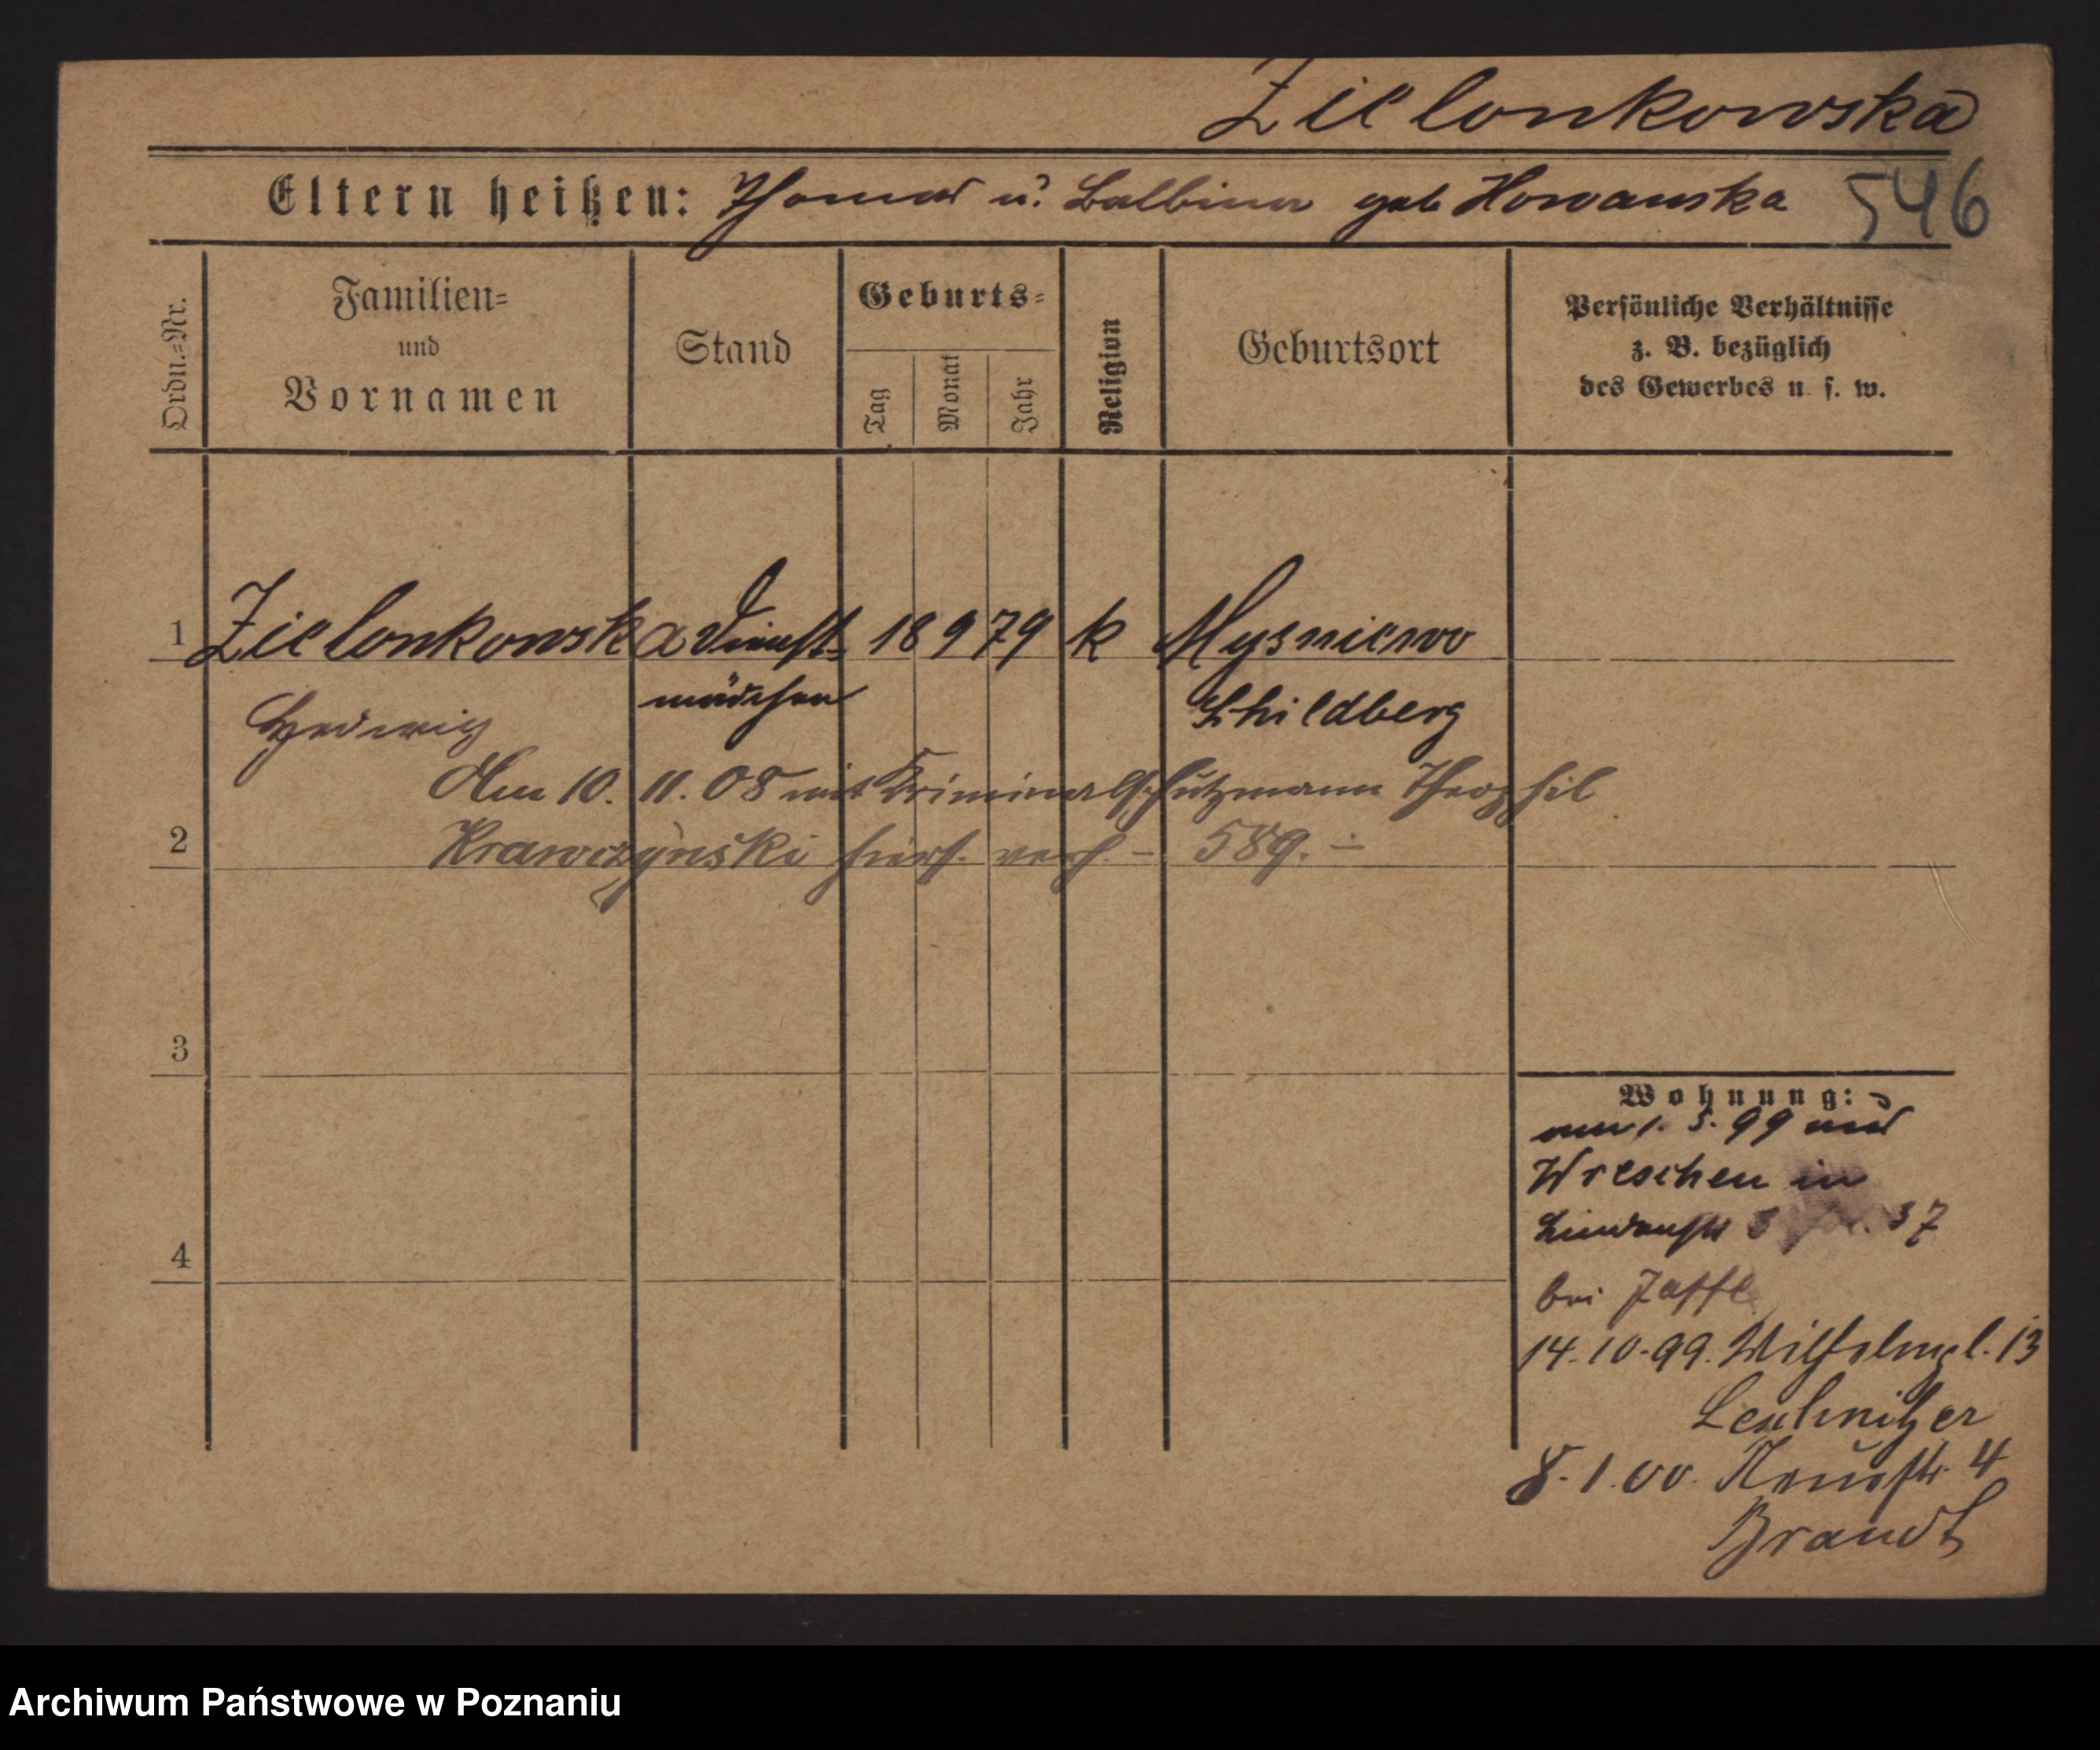 Zielonkowska
Eltern heißen: Thomas u. Balbina geb Howanska 546
Ordn.=Nr.
Familien=
und
Vornamen
Stand
Geburts=
Tag
Monat
Jahr
Religion
Geburtsort
Persönliche Verhältnisse
z. B. bezüglich
des Gewerbes u. s. w.
1 Zielonkowska Dienst= 18 9 79 k Mysniewo
Hedwig mädchen Schildberg
Am 10. 11. 08 mit Kriminalschutzmann Theophil
2 Krawczyński hiers. verh. – 589. –
3
4
Wohnung:
am 1. 5. 99 aus
Wreschen in
37
bei Jaffe
14.10.99. Wilhelmpl. 13
Leschnitzer
8.1.00. Neuestr. 4
Brandt
Archiwum Państwowe w Poznaniu